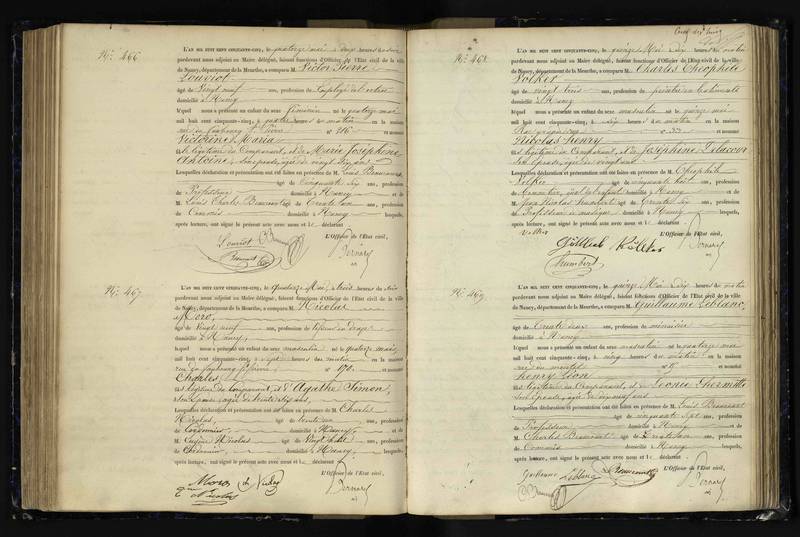 N°. 466
L'AN MIL HUIT CENT CINQUANTE-CINQ, le quatorze mai à deux heures du soir
pardevant nous adjoint au Maire délégué, faisant fonctions d'Officier de l'Etat civil de la ville
de Nancy, département de la Meurthe, a comparu M. Victor Pierre
Louviot
âgé de Vingt neuf ans, profession de Employé
domicilié à Nancy
lequel nous a présenté un enfant du sexe féminin né le quatorze mai
mil huit cent cinquante-cinq, à quatre heures du matin en la maison
rue du faubourg St Pierre n° 216 et nommé
Victorine Maria
fille légitime du Comparant, et de Marie Joséphine
Antoine, son épouse, âgée de vingt ans
Lesquelles déclaration et présentation ont été faites en présence de M. Louis Beaucourt
âgé de Cinquante six ans, profession
de Professeur domicilié à Nancy et de
M. Louis Charles Beaucourt âgé de Trente un ans, profession
de Commis domicilié à Nancy lesquels,
après lecture, ont signé le présent acte avec nous et le déclarant
L'Officier de l'Etat civil,
Louviot
Bernard
N°. 467
L'AN MIL HUIT CENT CINQUANTE-CINQ, le quatorze Mai, à trois heures du soir
pardevant nous adjoint au Maire délégué, faisant fonctions d'Officier de l'Etat civil de la ville
de Nancy, département de la Meurthe, a comparu M. Nicolas
Moro,
âgé de Vingt neuf ans, profession de tisseur en draps
domicilié à Nancy,
lequel nous a présenté un enfant du sexe masculin né le quatorze mai
mil huit cent cinquante-cinq, à sept heures du matin en la maison
rue du faubourg St pierre n° 170 et nommé
Charles
fils légitime du Comparant, et d'Agathe Simon,
son épouse, âgée de trente six ans,
Lesquelles déclaration et présentation ont été faites en présence de M. Charles
Nicolas âgé de trente un ans, profession
de Cordonnier, domicilié à Nancy et de
M. Eugène Nicolas âgé de Vingt huit ans, profession
de domicilié à Nancy, lesquels,
après lecture, ont signé le présent acte avec nous et le déclarant
L'Officier de l'Etat civil,
Moro
Nicolas
Bernard
N°. 468
L'AN MIL HUIT CENT CINQUANTE-CINQ, le quinze Mai dix heures du matin
pardevant nous adjoint au Maire délégué, faisant fonctions d'Officier de l'Etat civil de la ville
de Nancy, département de la Meurthe, a comparu M. Charles Théophile
Volker
âgé de vingt trois ans, profession de peintre en bâtiments
domicilié à Nancy
lequel nous a présenté un enfant du sexe masculin né le quinze mai
mil huit cent cinquante-cinq, à six heures du matin en la maison
n° 33 et nommé
Nicolas henry
fils légitime du Comparant, et de Joséphine Delacour
son épouse, âgée de vingt ans
Lesquelles déclaration et présentation ont été faites en présence de M. Théophile
Volker âgé de cinquante huit ans, profession
de domicilié à Nancy et de
M. Jean Nicolas Humbert âgé de trente six ans, profession
de Professeur de musique domicilié à Nancy lesquels,
après lecture, ont signé le présent acte avec nous et le déclarant
L'Officier de l'Etat civil,
Volker
Humbert
Bernard
N°. 469
L'AN MIL HUIT CENT CINQUANTE-CINQ, le quinze Mai dix heures du matin
pardevant nous adjoint au Maire délégué, faisant fonctions d'Officier de l'Etat civil de la ville
de Nancy, département de la Meurthe, a comparu M. Guillaume Leblanc,
âgé de Trente deux ans, profession de menuisier
domicilié à Nancy
lequel nous a présenté un enfant du sexe masculin né le quatorze mai
mil huit cent cinquante-cinq, à cinq heures du matin en la maison
et nommé
henry Léon
fils légitime du Comparant, et de Léonie Thermitte
son épouse, âgée de ans
Lesquelles déclaration et présentation ont été faites en présence de M. Louis Beaucourt
âgé de cinquante six ans, profession
de Professeur domicilié à Nancy et de
M. Charles Beaucourt âgé de Trente un ans, profession
de Commis domicilié à Nancy lesquels,
après lecture, ont signé le présent acte avec nous et le déclarant
L'Officier de l'Etat civil,
Guillaume Leblanc
Bernard